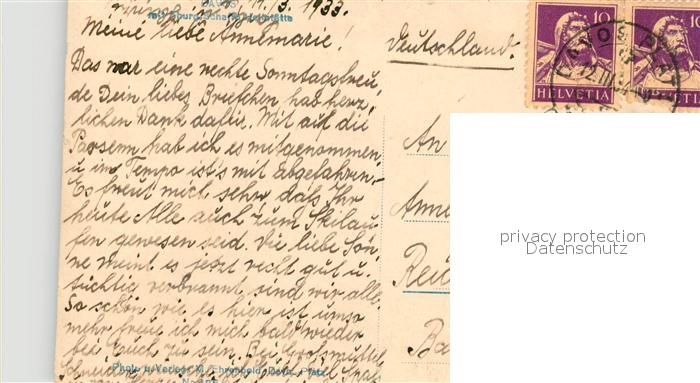 DAVOS
1933.
Meine liebe Annemarie!
Deutschland.
10
10
HELVETIA
HELVETIA
DAVOS PLATZ
Das war eine rechte Sonntagsfreu-
de Dein liebes Briefchen hab herz-
lichen Dank dafür. Mit auf die
Parsenn hab ich es mitgenommen
u. im Tempo ist's mit abgefahren.
Es freut mich sehr, daß Ihr
heute Alle auch zum Skilau-
fen gewesen seid. Die liebe Son-
ne meint es jetzt recht gut u.
tüchtig verbrannt sind wir alle.
So schön wie es hier ist umso
mehr freue ich mich bald wieder
bei Euch zu sein. Bei
An
Anne
Ba
privacy protection
Datenschutz
Photo u. Verlag